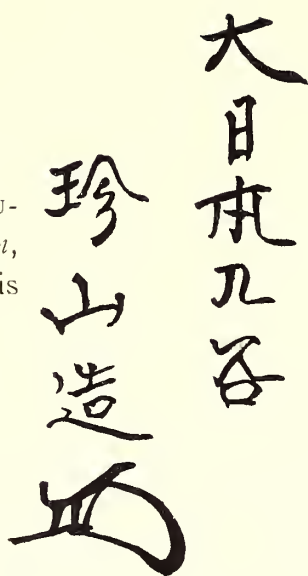 大日本九谷
珍山造
U-
n,
is